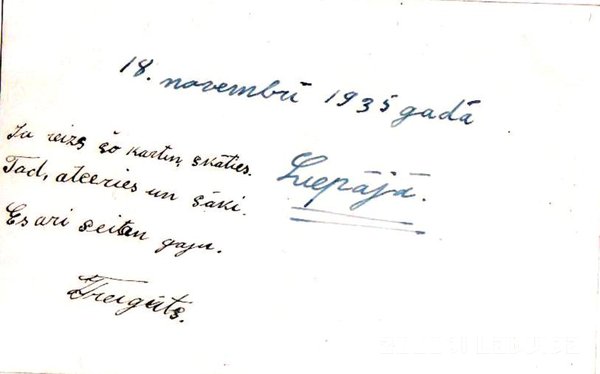 18. novembrī 1935 gadā
Liepājā.
Ja reizs šo kartiņ skāties.
Tad, atceries un sāki.
Es ari šeitan gaju.